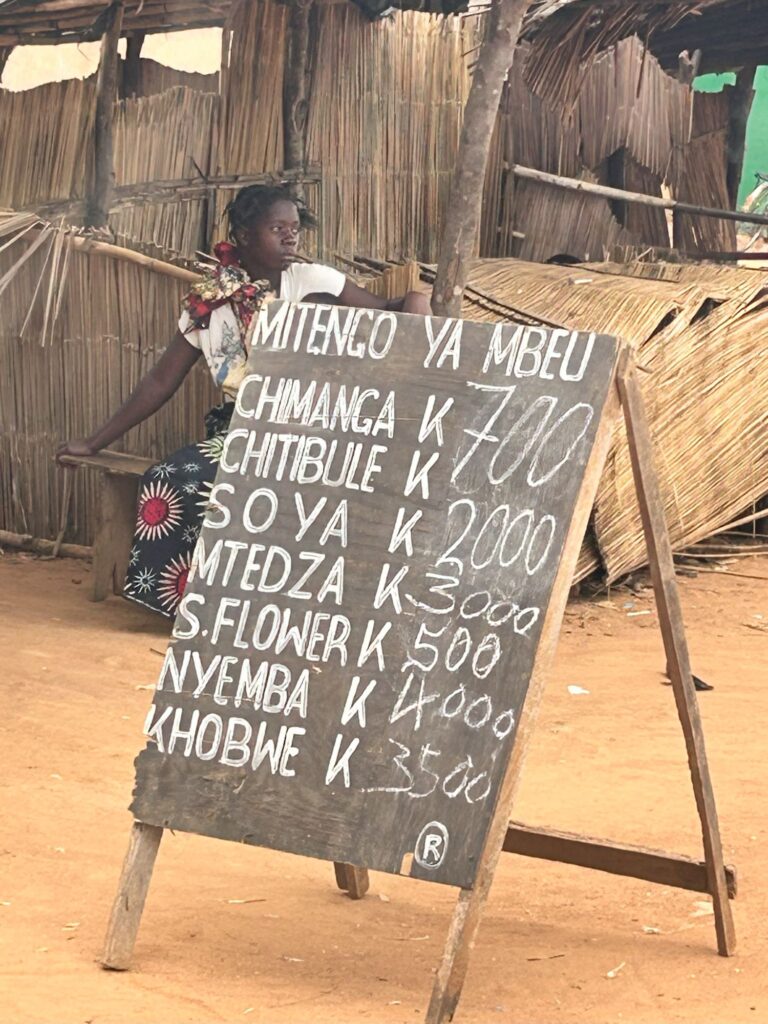 MITENGO YA MBEU
CHIMANGA K 700
CHITIBULE K
SOYA K 2000
MTEDZA K 3000
S.FLOWER K 500
NYEMBA K 4000
KHOBWE K 3500
®